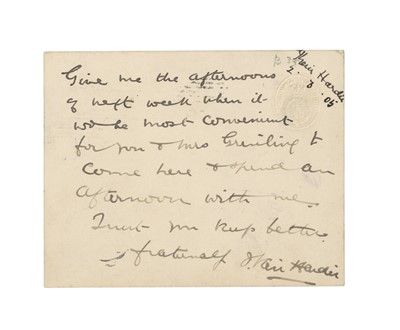 Keir Hardie
2.3.05
Give me the afternoons
of next week when it
wd be most convenient
for you & Mrs to
come here & spend an
afternoon with me.
Trust you keep better.
fraternally J. Keir Hardie